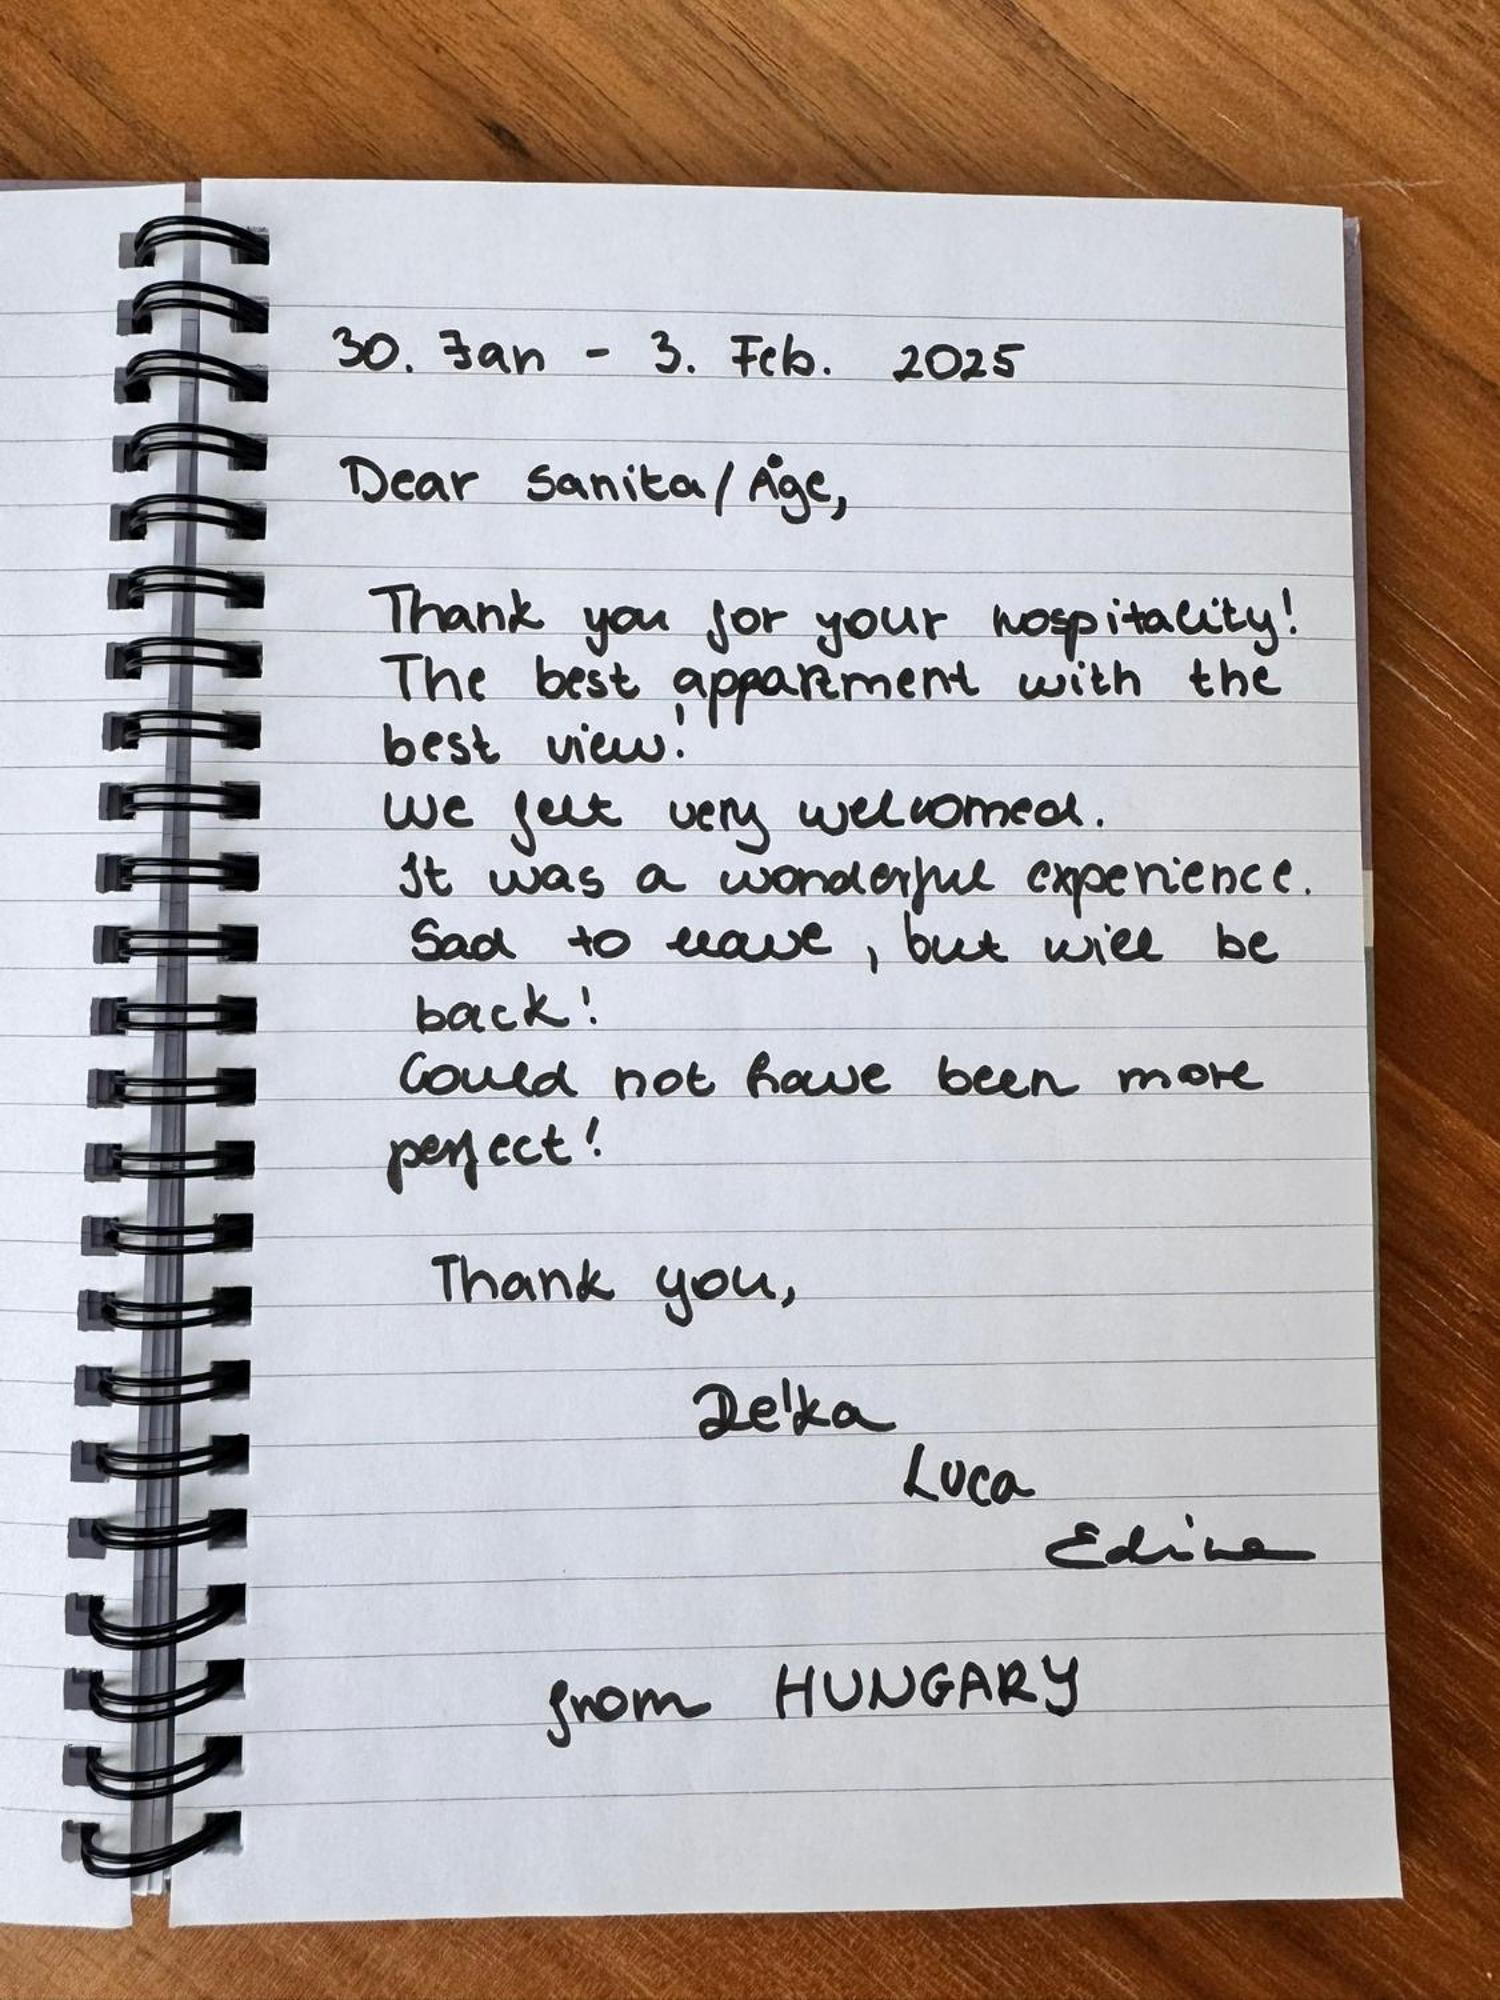 30. Jan - 3. Feb. 2025
Dear Sanita/Åge,
Thank you for your hospitality!
The best appartment with the
best view!
We felt very welcomed.
It was a wonderful experience.
Sad to leave, but will be
back!
Could not have been more
perfect!
Thank you,
Réka
Luca
Edina
from HUNGARY